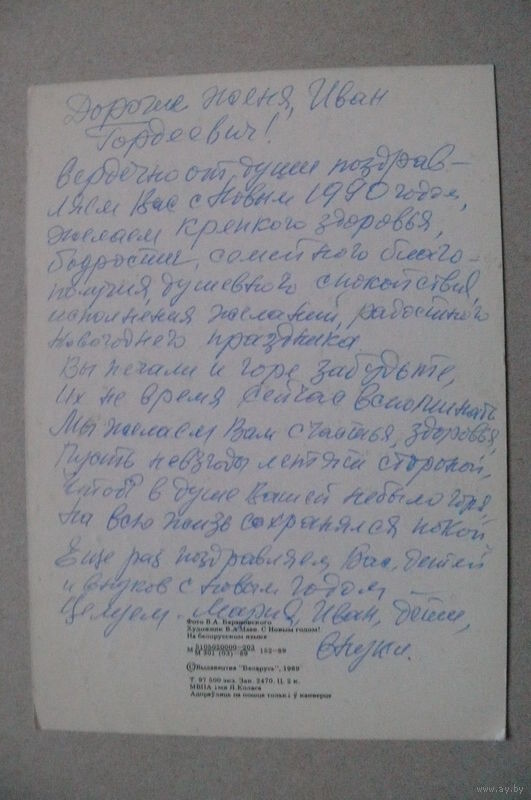 Дорогие Женя, Иван
Гордеевич!
Сердечно от души поздрав-
ляем Вас с Новым 1990 годом,
желаем крепкого здоровья,
бодрости, семейного благо-
получия, душевного спокойствия,
исполнения желаний, радостного
новогоднего праздника
Вы печали и горе забудьте,
Их не время сейчас вспоминать
Мы желаем Вам счастья, здоровья,
Пусть невзгоды летят стороной,
Чтоб в душе вашей не было горя,
На всю жизнь сохранялся покой
Еще раз поздравляем Вас, детей
и внуков с новым годом —
Целуем. Мария, Иван, дети,
внуки.
Фото В.А. Барановского
Художник В.А. С Новым годом!
На белорусском языке
М 5105020000—203 / М 301 (03)—89 152—89
© Выдавецтва "Беларусь", 1989
Т. 97 500 экз. Зак. 2470. Ц. 2 к.
МВПА імя Я.Коласа
Адпраўляць па пошце толькі ў канверце
www.ay.by